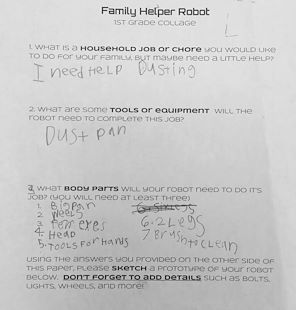 Family Helper Robot
1ST GRADE COLLAGE
L
1. WHAT IS A HOUSEHOLD JOB OR CHORE YOU WOULD LIKE
TO DO FOR YOUR FAMILY, BUT MAYBE NEED A LITTLE HELP?
I need HeLP Dusting
2. WHAT ARE SOME TOOLS OR EQUIPMENT WILL THE
ROBOT NEED TO COMPLETE THIS JOB?
Dust pan
3. WHAT BODY PARTS WILL YOUR ROBOT NEED TO DO IT'S
JOB? (YOU WILL NEED AT LEAST THREE)
1.
2. weels
3. eyes
4. Head
5. TOOLS For Hands
6. 2 Legs
7 Brush to clean
USING THE ANSWERS YOU PROVIDED ON THE OTHER SIDE OF
THIS PAPER, PLEASE SKETCH A PROTOTYPE OF YOUR ROBOT
BELOW. DON'T FORGET TO ADD DETAILS SUCH AS BOLTS,
LIGHTS, WHEELS, AND MORE!